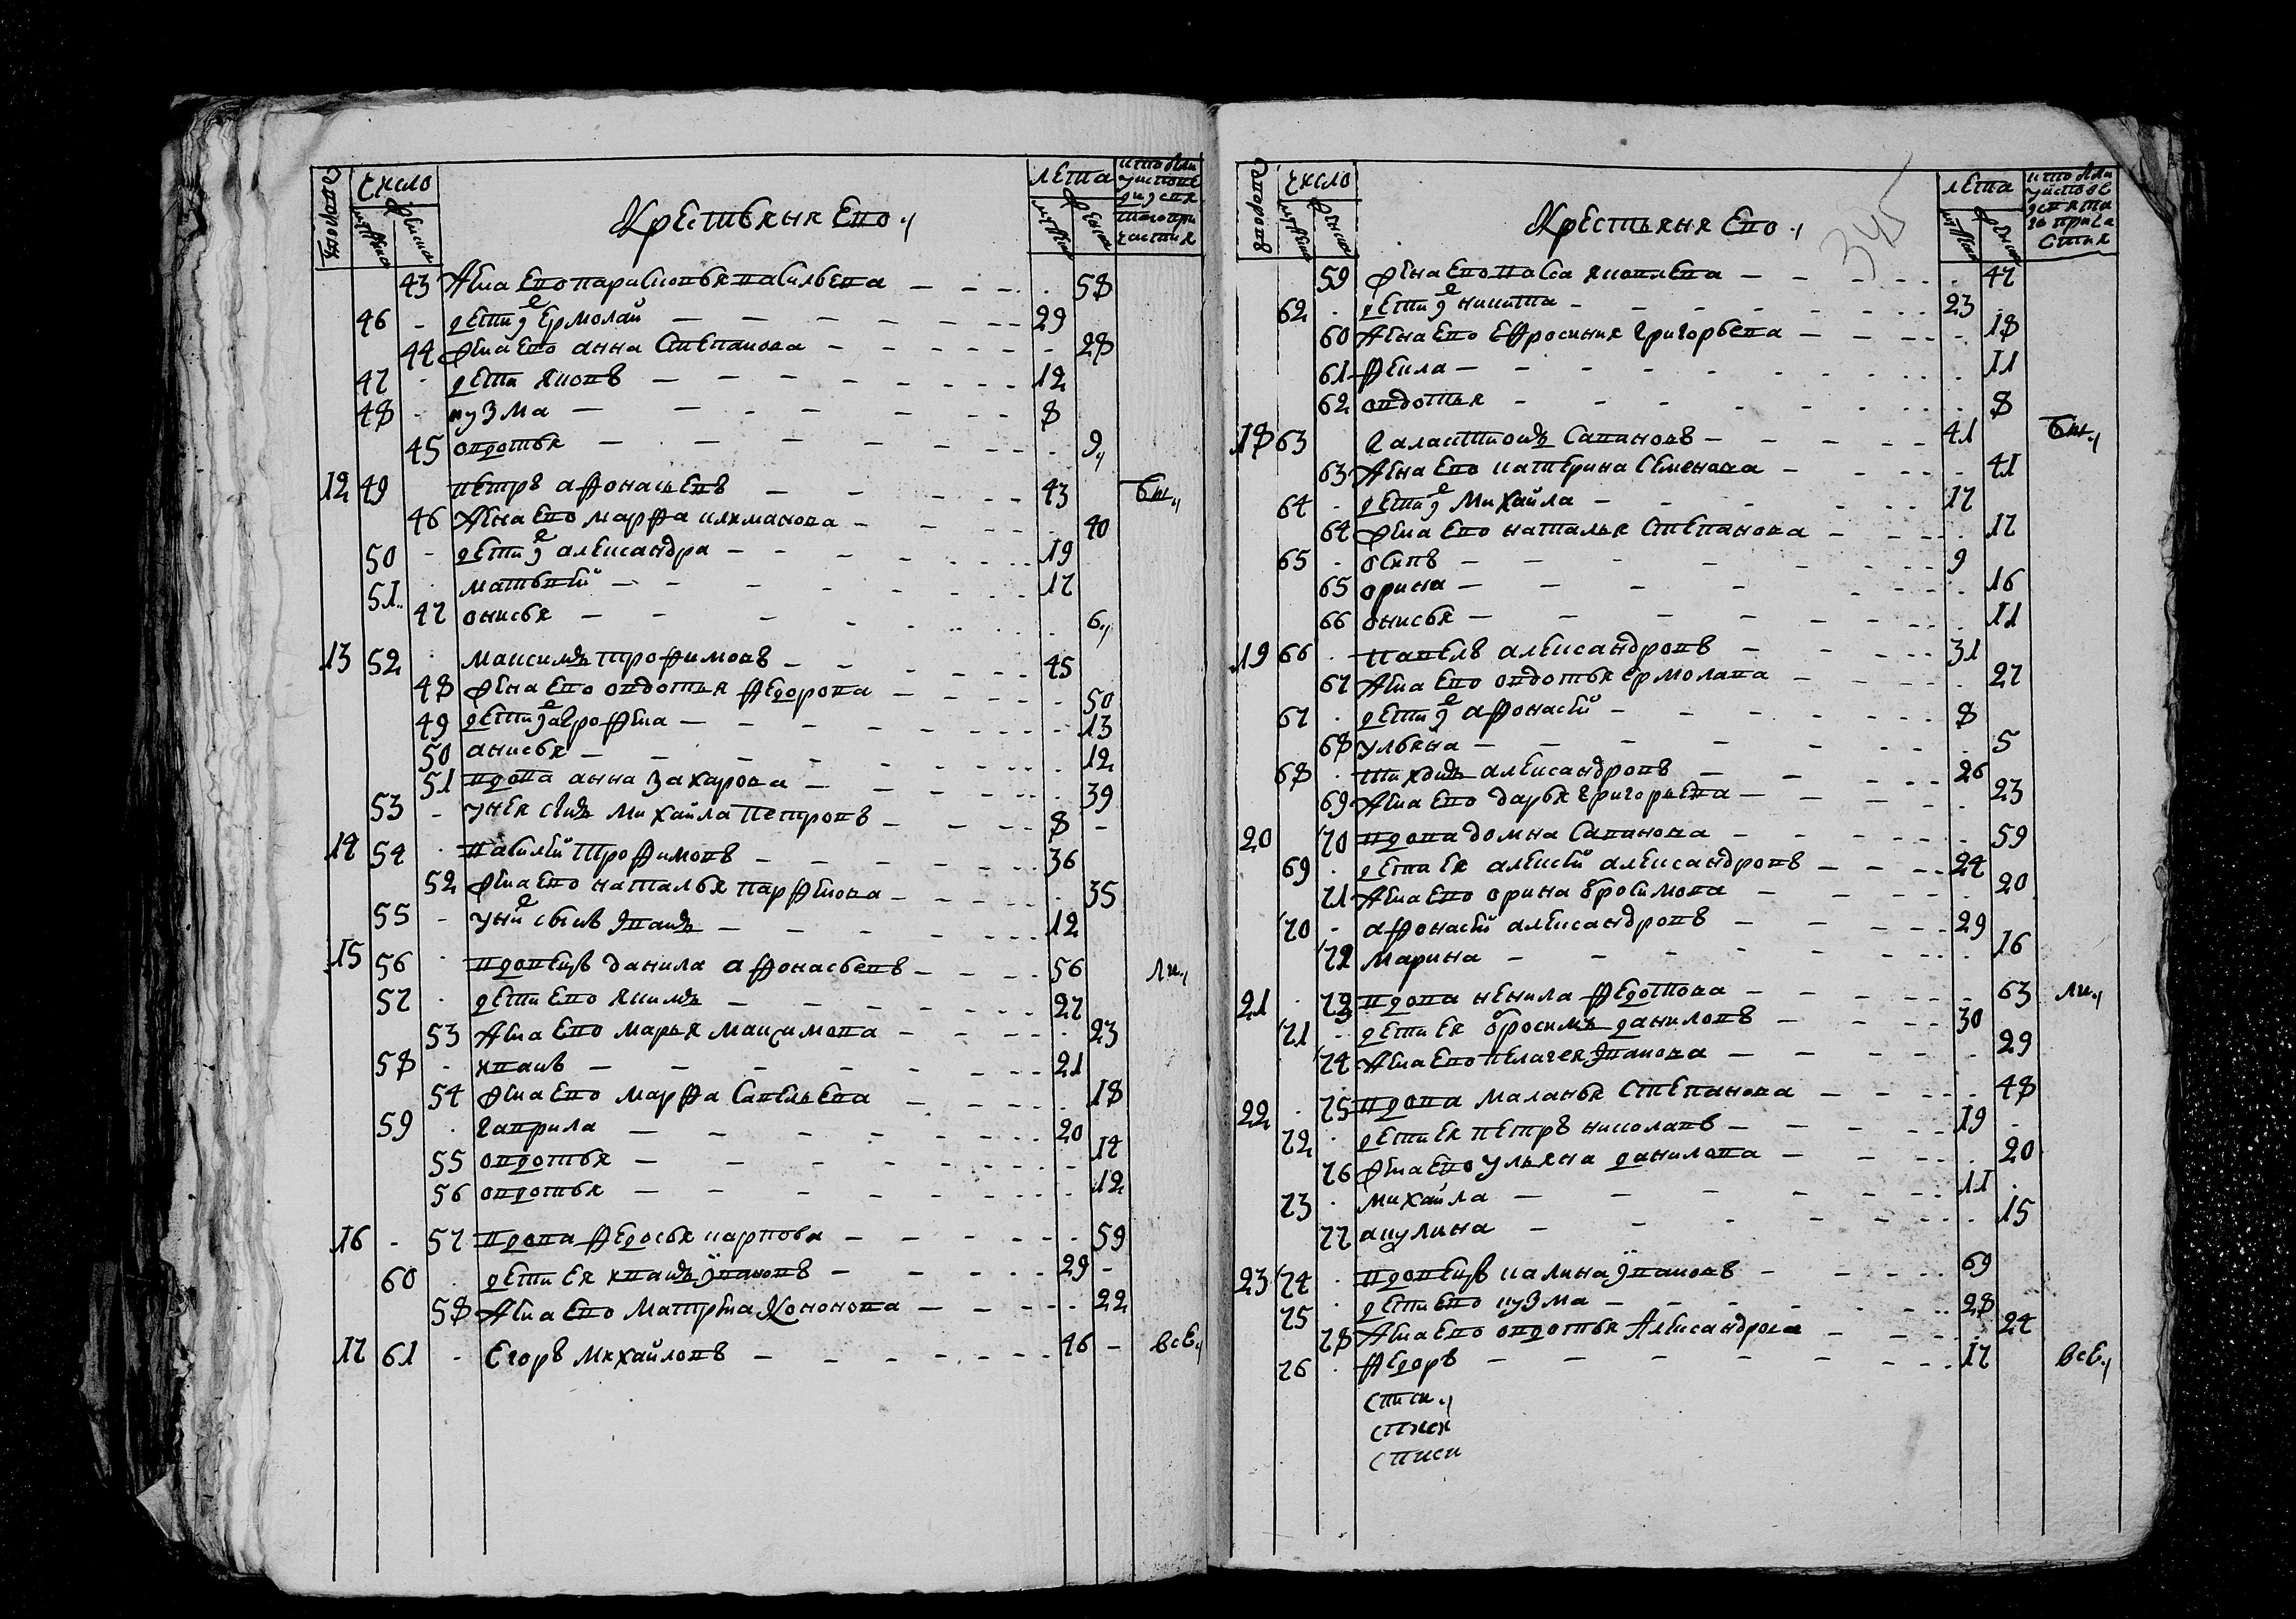 дворовъ
число
мужеска
женска
Крестьяня Ево
лета
мужеска
женска
кто были
у испове
ди и свя
таго при
частия
43 Жена Ево парасковья васильева 58
46 дети ѥ Ермолай 29
44 жена Ево анна Степанова 28
47 дети Яковъ 12
48 кузма 8
45 овдотья 9
12 49 петръ афонасьевъ 43 был
46 Жена Ево марфа илимановa 40
50 дети ѥ александра 19
51 матвей 17
47 онисья 6
13 52 максимъ трофимовъ 45
48 жена Ево овдотья федорова 50
49 дети ѥ агрофена 13
50 анисья 12
51 вдова анна Захарова 39
53 у нея сынъ михайла петровъ 8
14 54 василей трофимовъ 36
52 жена Ево наталья парфенова 35
55 у ниѥ сынъ Iванъ 12
15 56 вдовецъ данила афонасьевъ 56
57 дети Ево якимъ 27
53 Жена Ево марья максимова 23
58 иванъ 21
54 жена Ево марфа Савельева 18
59 гаврила 20
55 овдотья 14
56 овдотья 12
16 57 вдова федосья карпова 59
60 дети Ея иванъ Iвановъ 29
58 Жена Ево матрена Кононова 22
17 61 Егоръ михайловъ 46 все
дворовъ
число
мужеска
женска
Крестьяня Ево
345
лета
мужеска
женска
кто были
у испове
ди и свята
го прича
стия
59 жена Ево васса яковлева 47
62 дети ѥ никита 23
60 Жена Ево Ефросиния григорьева 18
61 фекла 11
62 овдотья 8
18 63 галактионъ Савиновъ 41 был
63 Жена Ево катерина Семенова 41
64 дети ѥ михайла 17
64 жена Ево наталья Степанова 17
65 осипъ 9
65 орина 16
66 онисья 11
19 66 павелъ александровъ 31
67 Жена Ево овдотья Ермолава 27
67 дети ѥ афонасей 8
68 ульяна 5
68 александровъ 26
69 Жена Ево дарья григорьева 23
20 70 вдова домна Савинова 59
69 дети Ея алексей александровъ 24
71 Жена Ево орина обросимова 20
70 афонасей александровъ 29
72 марина 16
21 73 вдова ненила федотова 63
71 дети Ея обросимъ даниловъ 30
74 Жена Ево пелагея Iванова 29
22 75 вдова маланья Степанова 48
72 дети Ея петръ николавъ 19
76 жена Ево ульяна данилова 20
73 михайла 11
77 акулина 15
23 74 вдовецъ калина Iвановъ 69
75 дети Ево кузма 28
78 Жена Ево овдотья Александрова 24
76 федоръ 17 все